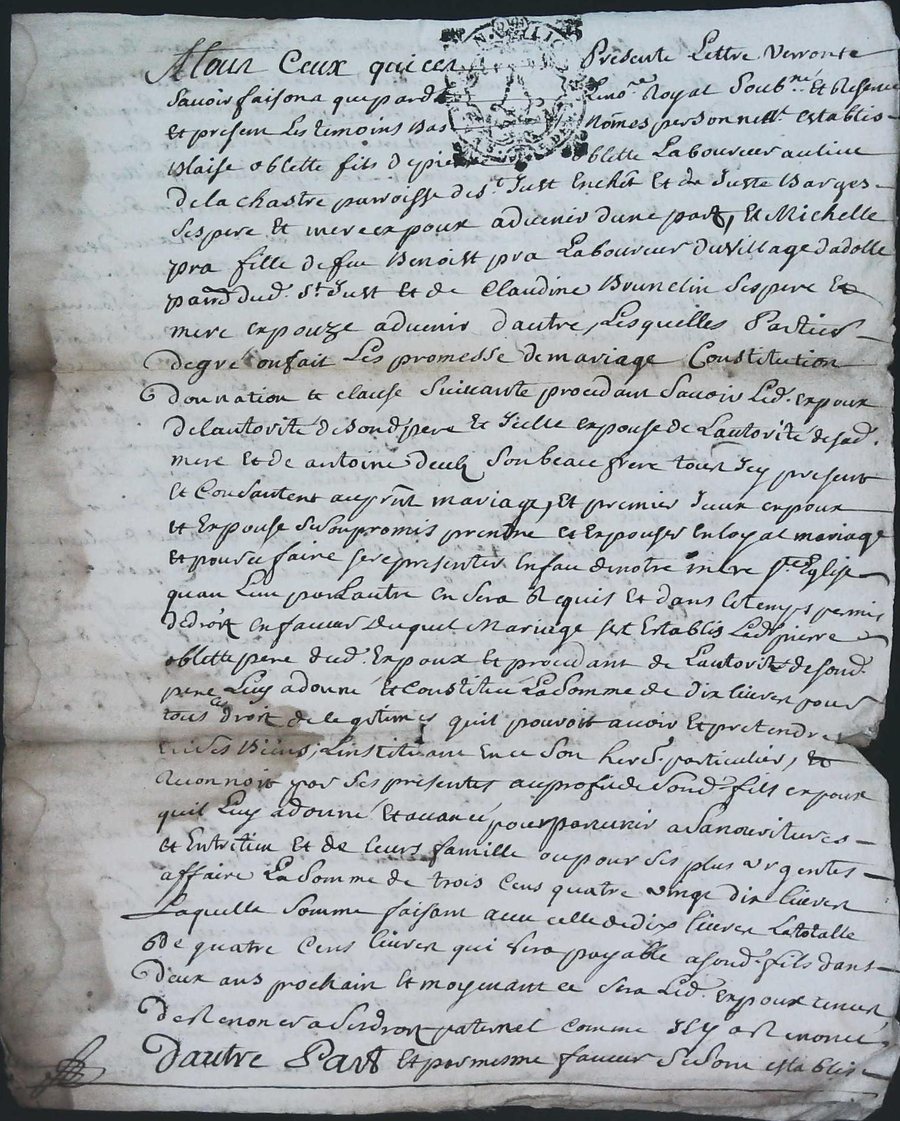 A tous Ceux qui ces Presente Lettre verronte
Savoir faisons que pard Le no.re Royal Soub.né Et Reserve
et presen Les temoins bas Nomes personnellt establis
Blaise oblette fils de pie oblette Laboureur au lieu
de la Chastre parroisse de St Just En chlt Et de Juste Barges
Ses pere Et mere expoux advenir dune part, Et Michelle
pra fille de feu Benoist pra Laboureur du village dadolle
parr dud. St Just Et de Claudine Brunelin Ses pere Et
mere expouze advenir dautre, Lesquelles Parties
de gré on fait Les promesse de mariage Constitution
donnation & clause Suivante procedant Savoir Led. expoux
de Lautorité de Sond pere Et Icelle expouse de Lautorité de sad.
mere Et de antoine Son beau frere tous Icy present
Et Consantent au prñt mariage, Et premier Iceux expoux
et Expouse Se Son promis prendre et Expouser En loyal mariage
Et pour ce faire se representer En face de notre mere Ste Eglise
quan Lun par Lautre en Sera Requis Et dans le temps permis
de droit En faveur duquel Mariege Sest Establis Led pierre
oblette pere dud. Expoux Et procedant de Lautorité de Sond.
pere Luy a donné Et Constitué La Somme de dix livres pour
tous droit de legitimes quil pouvoit avoir Et pretendre
En Ses Biens, Linstituant En ce Son heret. particulier, Et
Reconnoit par Ses presentes au profit de Sond. fils expoux
quil Luy a donné Et avancé pour parvenir a Sa nouriture
et Entretien Et de leurs famille ou pour Ses plus urgentes
affaire La Somme de trois Cens quatre vingt dix livres
Laquelle Somme faisant avec celle de dix livres La totalle
de quatre Cens livres qui Sera payable a Sond. fils dans
deux ans prochain Et moyenant ce Sera Led. expoux tenus
de Renoncer a Ses droit paternel comme Il y a Renoncé.
Dautre Part Et par mesme faveur Se Son establis